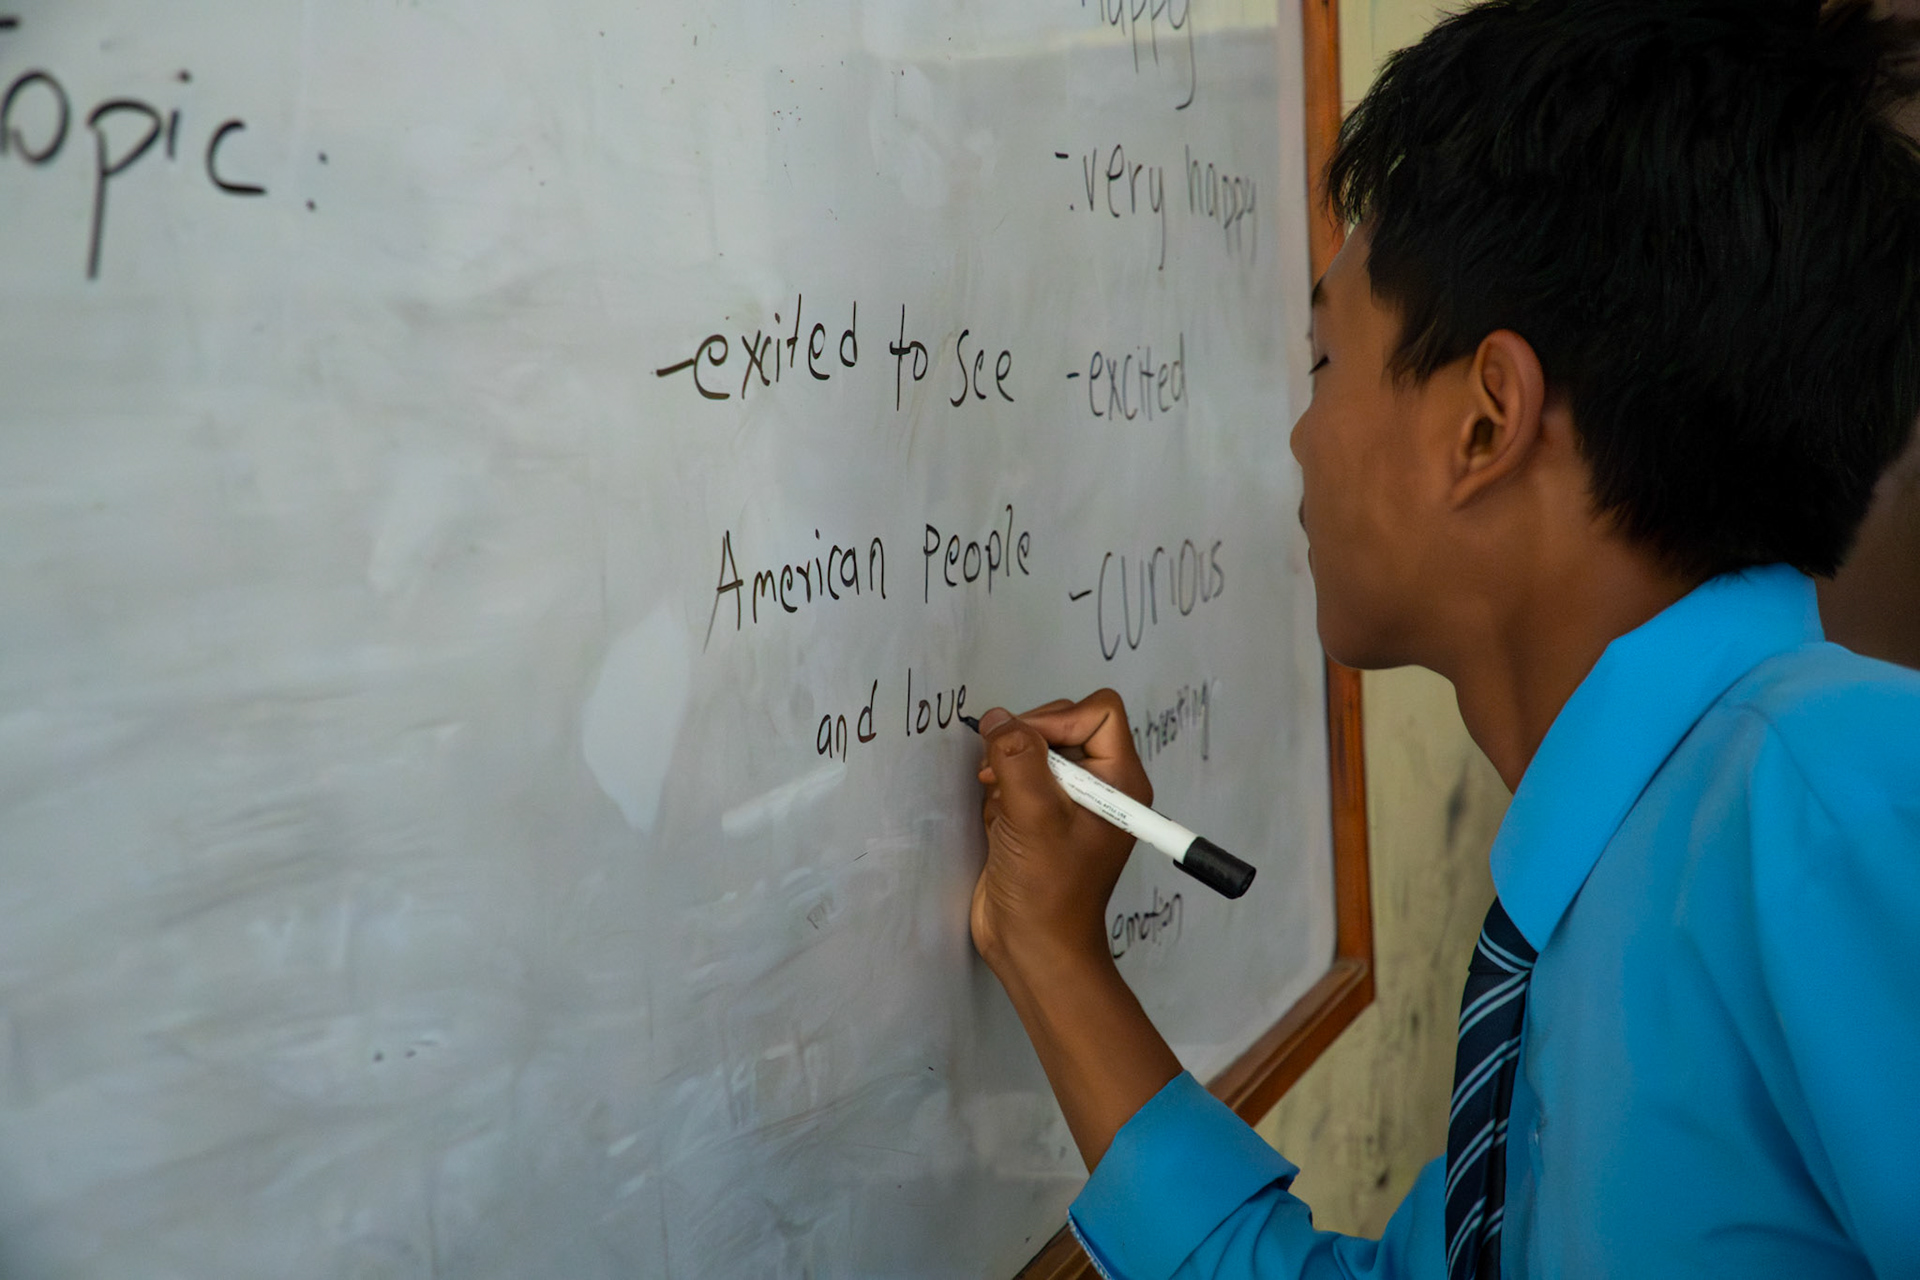 Topic:
happy
-very happy
-exited to see
-excited
American People
-curious
and love
emotion